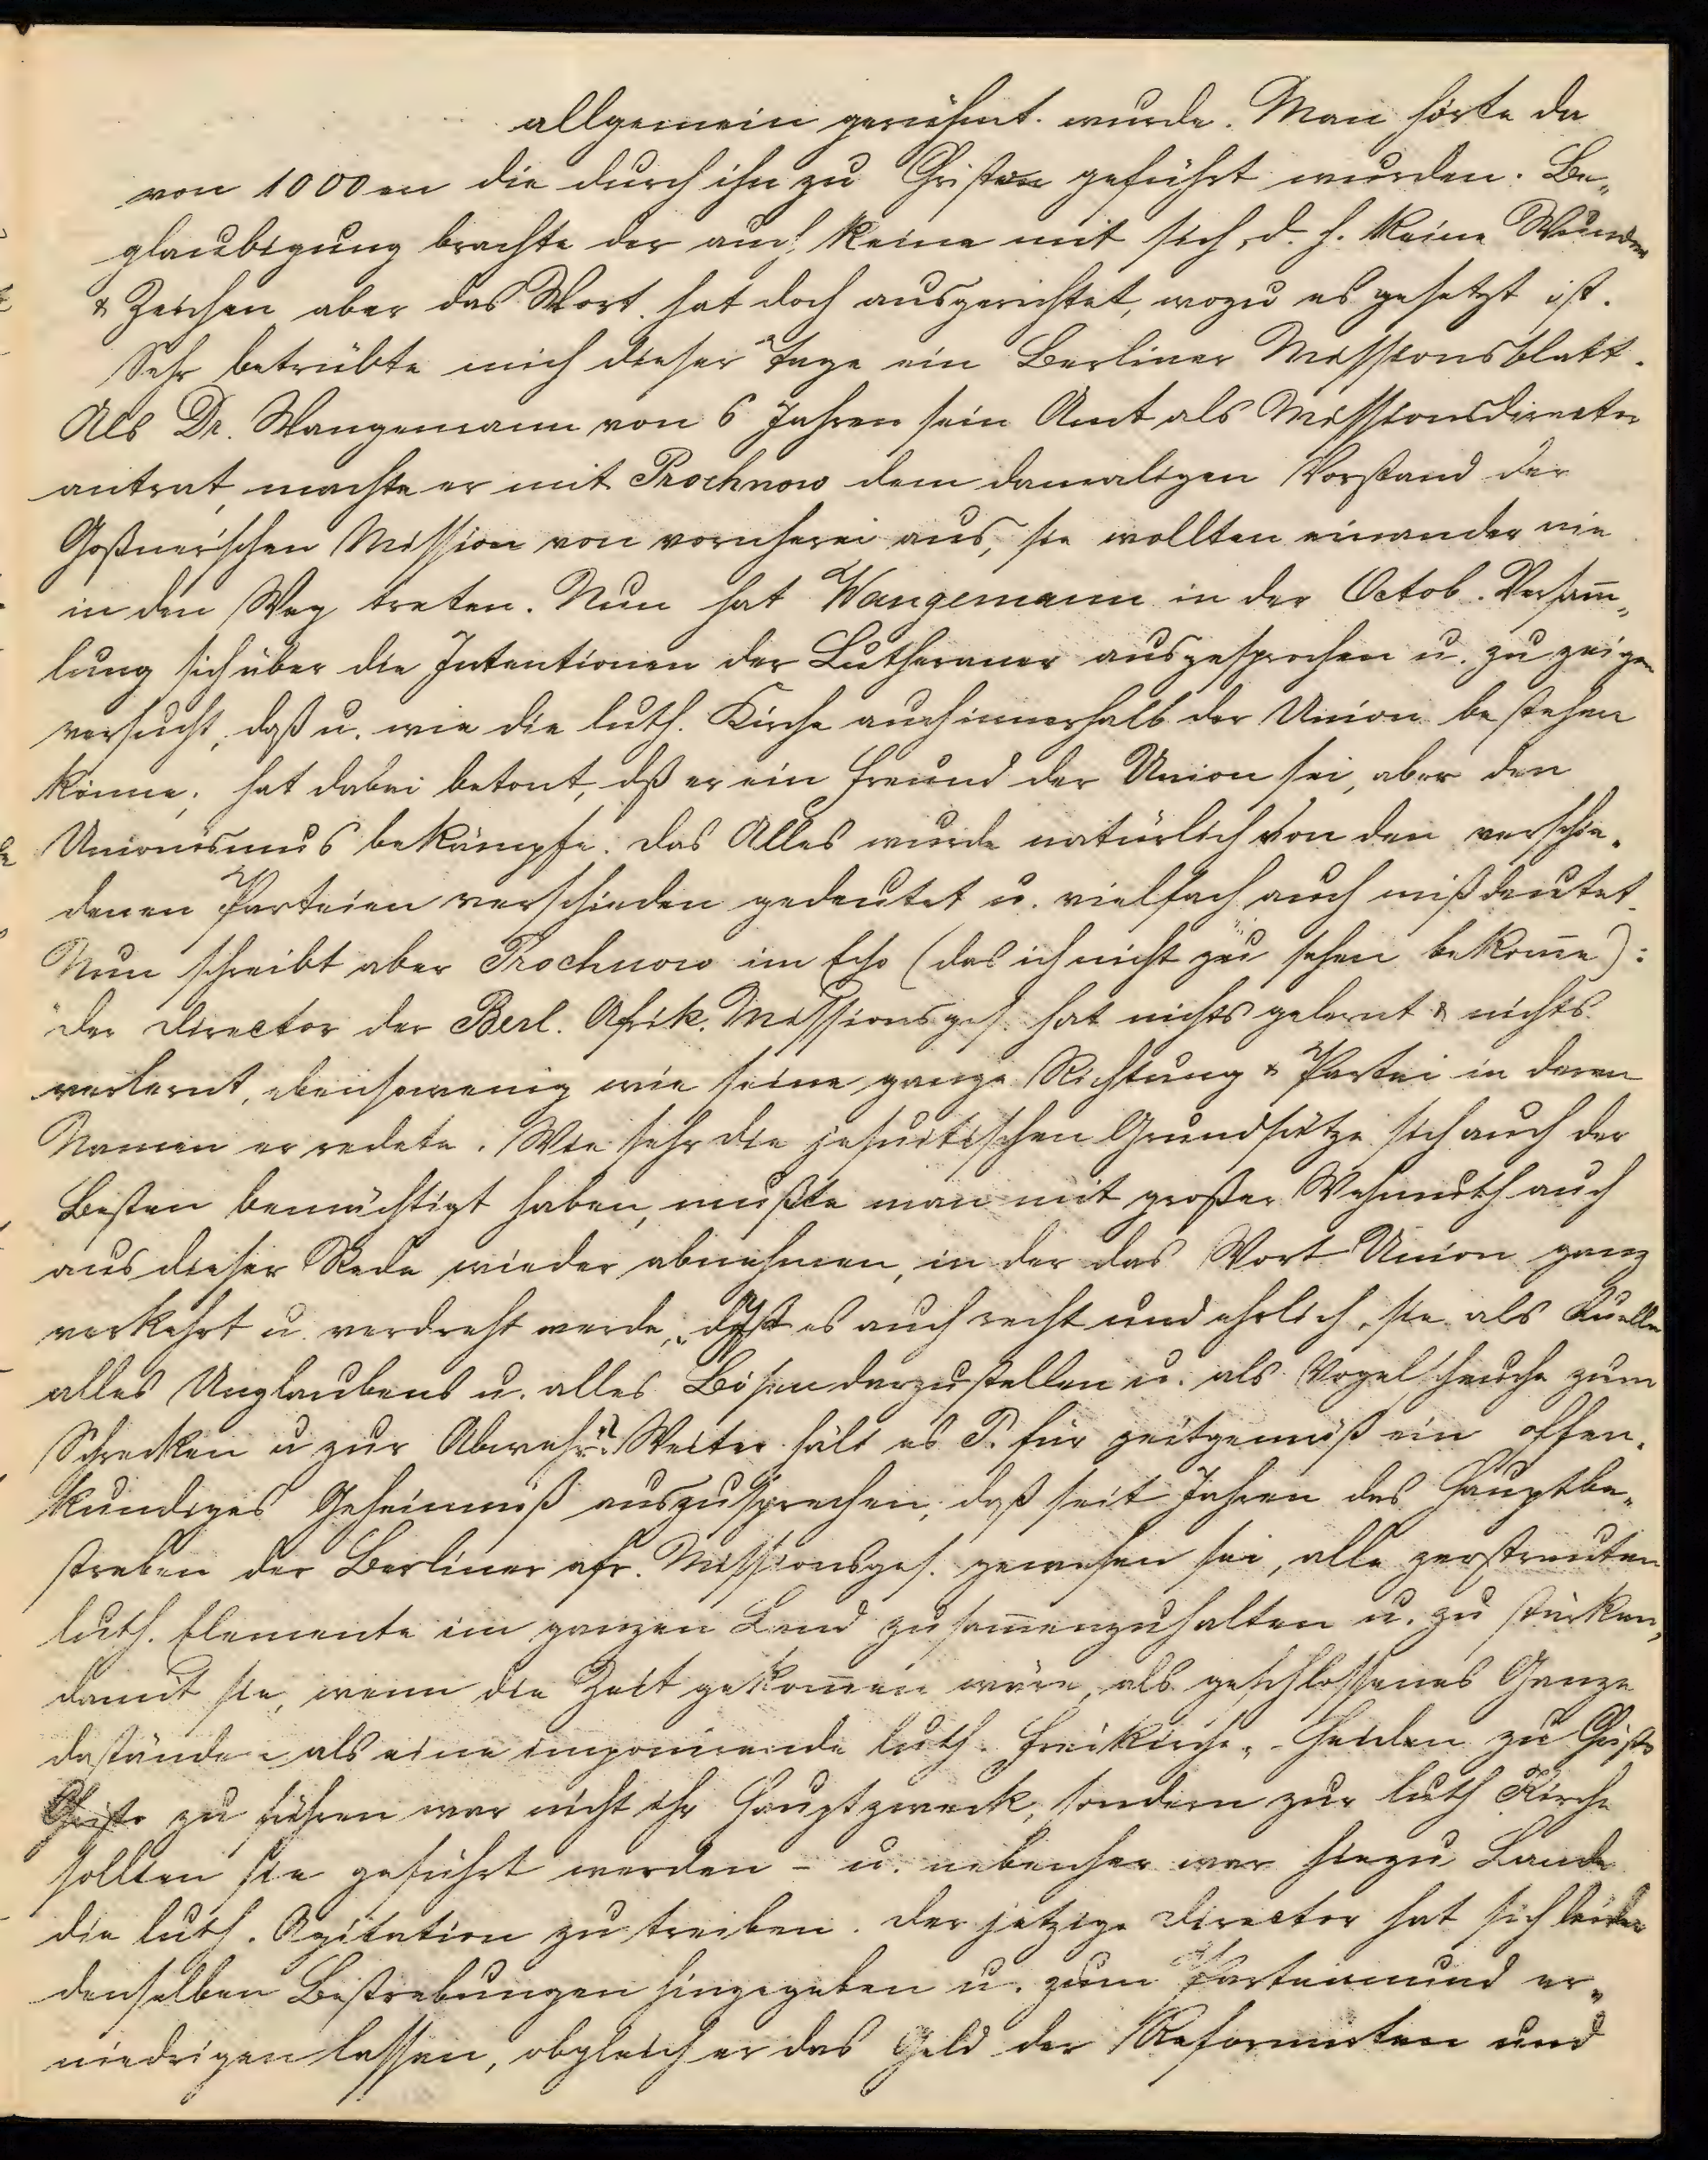 allgemein gerühmt wurde. Man hörte da
von 1000en die durch ihn zu Christen geführt wurden. Be„
glaubigung brachte der auch keine mit sich, d. h. keine Wunder
& Zeichen aber das Wort hat doch ausgerichtet, wozu es gesetzt ist.
Sehr betrübte mich dieser Tage ein Berliner Missionsblatt.
Als Dr. Wangemann vor 6 Jahren sein Amt als Missionsdirector
antrat, machte er mit Prochnow dem damaligen Vorstand der
Goßnerschen Mission von vornherein aus, sie wollten einander nie
in den Weg treten. Nun hat Wangemann in der Octob. Versam̅„
lung sich über die Intentionen der Lutheraner ausgesprochen u. zu zeigen
versucht, daß u. wie die luth. Kirche auch innerhalb der Union bestehen
könne, hat dabei betont, dß er ein Freund der Union sei, aber den
Unionismus bekämpfe. Das Alles wurde natürlich von den verschie„
denen Parteien verschieden gedeutet u. vielfach auch mißdeutet.
Nun schreibt aber Prochnow im Echo (das ich nicht zu sehen bekom̅e):
"der Director der Berl. Afrik. Missionsges. hat nichts gelernt & nichts
verlernt, ebensowenig wie seine ganze Richtung & Partei in deren
Namen er redete. Wie sehr die jesuitischen Grundsätze sich auch der
Besten bemächtigt haben, mußte man mit großer Wehmuth auch
aus dieser Rede wieder abnehmen, in der das Wort Union ganz
verkehrt u. verdreht werde, „ist es auch recht und ehrlich, sie als Quelle
alles Unglaubens u. alles Bösen darzustellen u. als Vogelscheuche zum
Schrecken u zur Abwehr"? Weiter hält es P. für zeitgemäß ein offen„
kundiges Geheimniß auszusprechen, daß seit Jahren das Hauptbe„
streben der Berliner afr. Missionsges. gewesen sei, alle zerstreuten
luth. Elemente im ganzen Land zusam̅enzuhalten u. zu stärken,
damit sie, wenn die Zeit gekom̅en wäre, als geschlossenes Ganze
dastände - als eine imponirende luth. Freikirche. - Heiden zu Christo
Christo zu führen war nicht ihr Hauptzweck, sondern zur luth Kirche
sollten sie geführt werden - u. nebenher war hiezu Lande
die luth. Agitation zu treiben. Der jetzige Director hat sich leider
denselben Bestrebungen hingegeben u. zum Parteimund er„
niedrigen lassen, obgleich er das Geld der Reformirten und